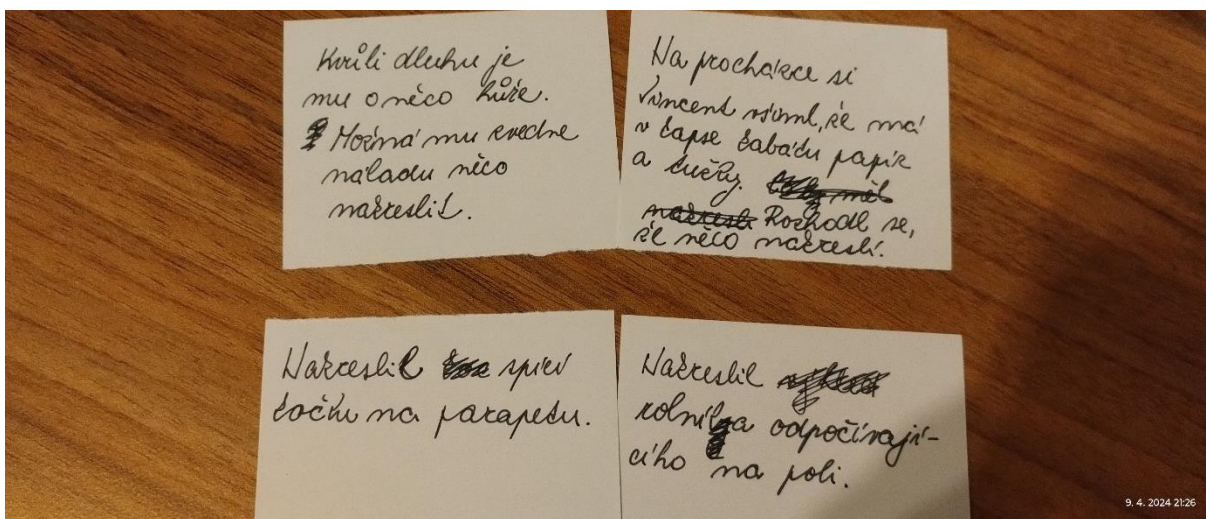 Kvůli dluhu je
mu o něco hůře.
Možná mu zvedne
náladu něco
nakreslit.
Na procházce si
Vincent všiml, že má
v kapse kabátu papír
a tužky.
Rozhodl se,
že něco nakreslí.
Nakreslil spící
kočku na parapetu.
Nakreslil
rolníka odpočívají-
cího na poli.
9. 4. 2024 21:26